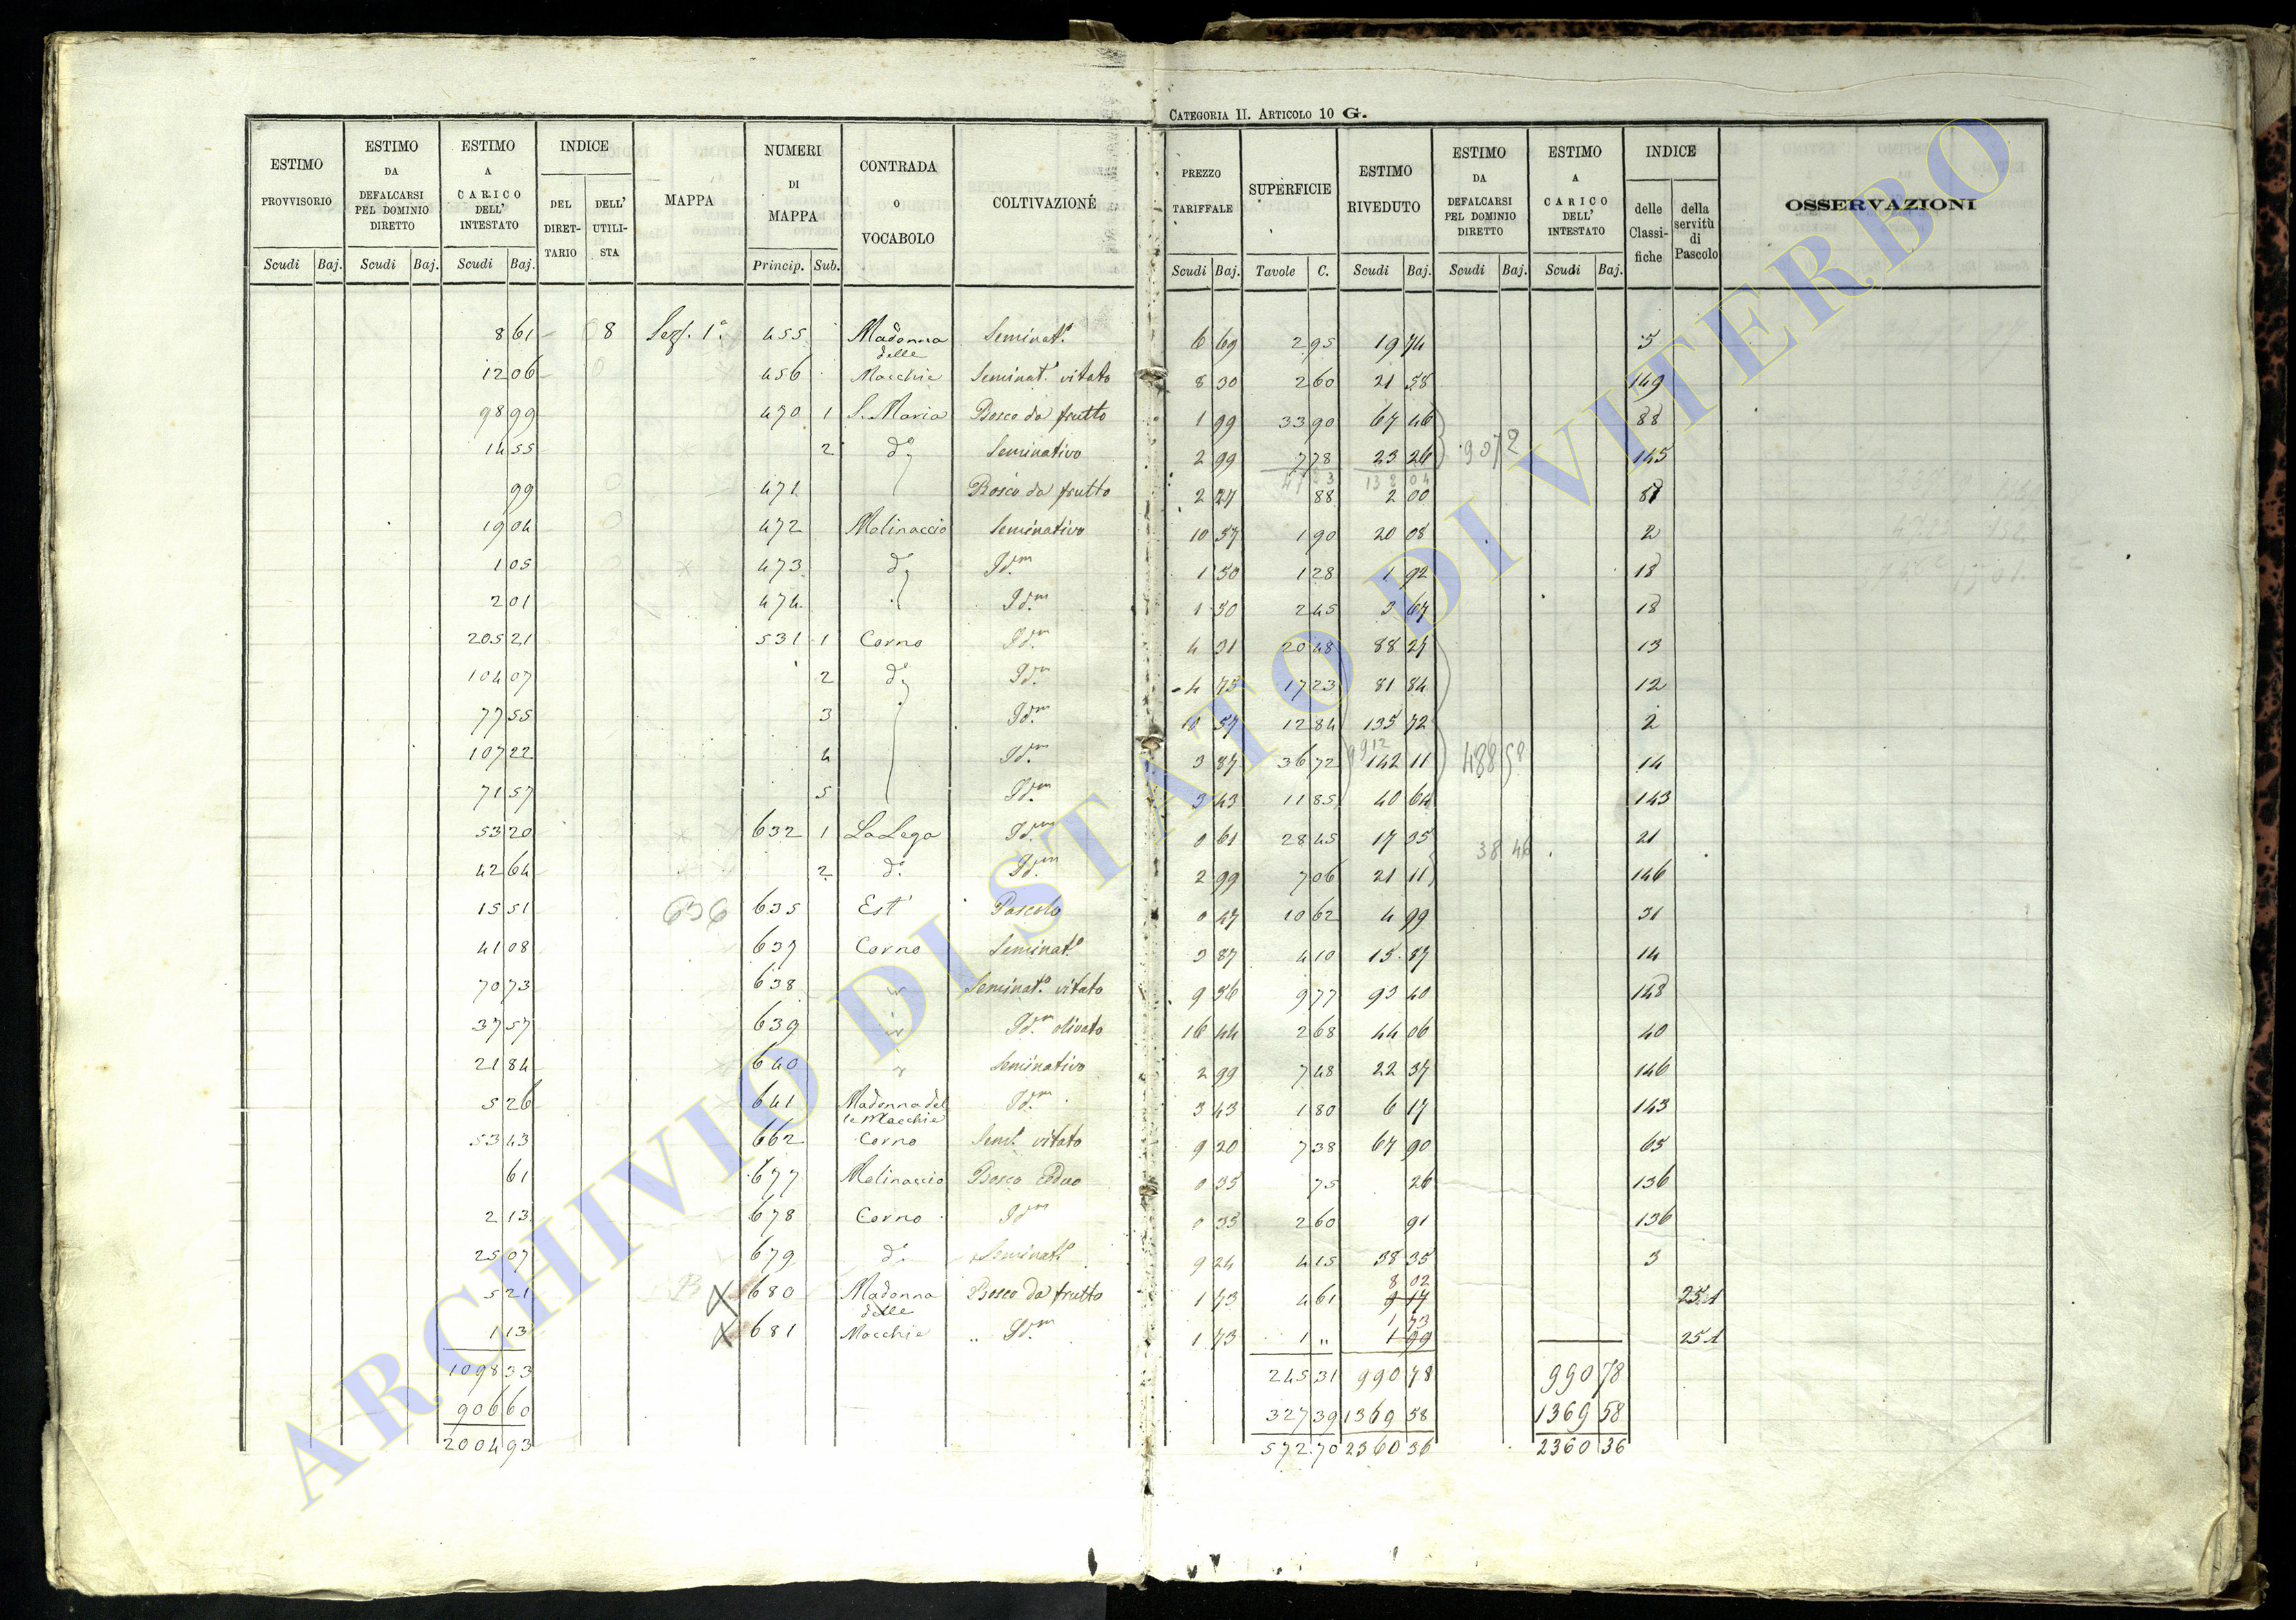 CATEGORIA II. ARTICOLO 10 G.
ESTIMO PROVVISORIO Scudi Baj.
ESTIMO DA DEFALCARSI PEL DOMINIO DIRETTO Scudi Baj.
ESTIMO A CARICO DELL' INTESTATO Scudi Baj.
INDICE DEL DIRETTARIO DELL' UTILISTA
MAPPA
NUMERI DI MAPPA Princip. Sub.
CONTRADA O VOCABOLO
COLTIVAZIONE
PREZZO TARIFFALE Scudi Baj.
SUPERFICIE Tavole C.
ESTIMO RIVEDUTO Scudi Baj.
ESTIMO DA DEFALCARSI PEL DOMINIO DIRETTO Scudi Baj.
ESTIMO A CARICO DELL' INTESTATO Scudi Baj.
INDICE delle Classifiche della servitù di Pascolo
OSSERVAZIONI
8 61 8 Sez. 1ª 455 Madonna delle Seminat.º 6 69 2 95 19 74 5
12 06 456 Macchie Seminat.º vitato 8 30 2 60 21 58 149
98 99 470 1 S. Maria Bosco da frutto 1 99 33 90 67 46 88
14 55 2 dº Seminativo 2 99 7 78 23 26 90 72 145
99 471 Bosco da frutto 2 27 88 2 00 87
19 04 472 Molinaccio Seminativo 10 57 1 90 20 08 2
1 05 473 dº Idm 1 50 1 28 1 92 18
2 01 474 Idm 1 50 2 45 3 67 18
205 21 531 1 Corno Idm 4 31 20 48 88 27 13
104 07 2 dº Idm 4 75 17 23 81 84 12
77 55 3 Idm 10 57 12 84 135 72 2
107 22 4 Idm 3 87 36 72 142 11 488 58 14
71 57 5 Idm 3 43 11 85 40 64 143
53 20 632 1 La Lega Idm 0 61 28 45 17 35 38 46 21
42 64 2 dº Idm 2 99 7 06 21 11 146
15 51 636 635 Est' Pascolo 0 47 10 62 4 99 31
41 08 637 Corno Seminat.º 3 87 4 10 15 87 14
70 73 638 Seminat.º vitato 9 56 9 77 93 40 148
37 57 639 Idm olivato 16 44 2 68 44 06 40
21 84 640 Seminativo 2 99 7 48 22 37 146
5 26 641 Madonna del le Macchie Idm 3 43 1 80 6 17 143
53 43 662 Corno Sem.º vitato 9 20 7 38 67 90 65
61 677 Molinaccio Bosco Ceduo 0 35 75 26 136
2 13 678 Corno Idm 0 35 2 60 91 136
25 07 679 dº Seminat.º 9 24 4 15 38 35 3
5 21 680 Madonna delle Bosco da frutto 1 73 4 61 8 02 9 17 25 A
1 13 681 Macchie Idm 1 73 1 " 1 73 1 99 25 A
1098 33 245 31 990 78 990 78
906 60 327 39 1369 58 1369 58
2004 93 572 70 2360 36 2360 36
ARCHIVIO DI STATO DI VITERBO